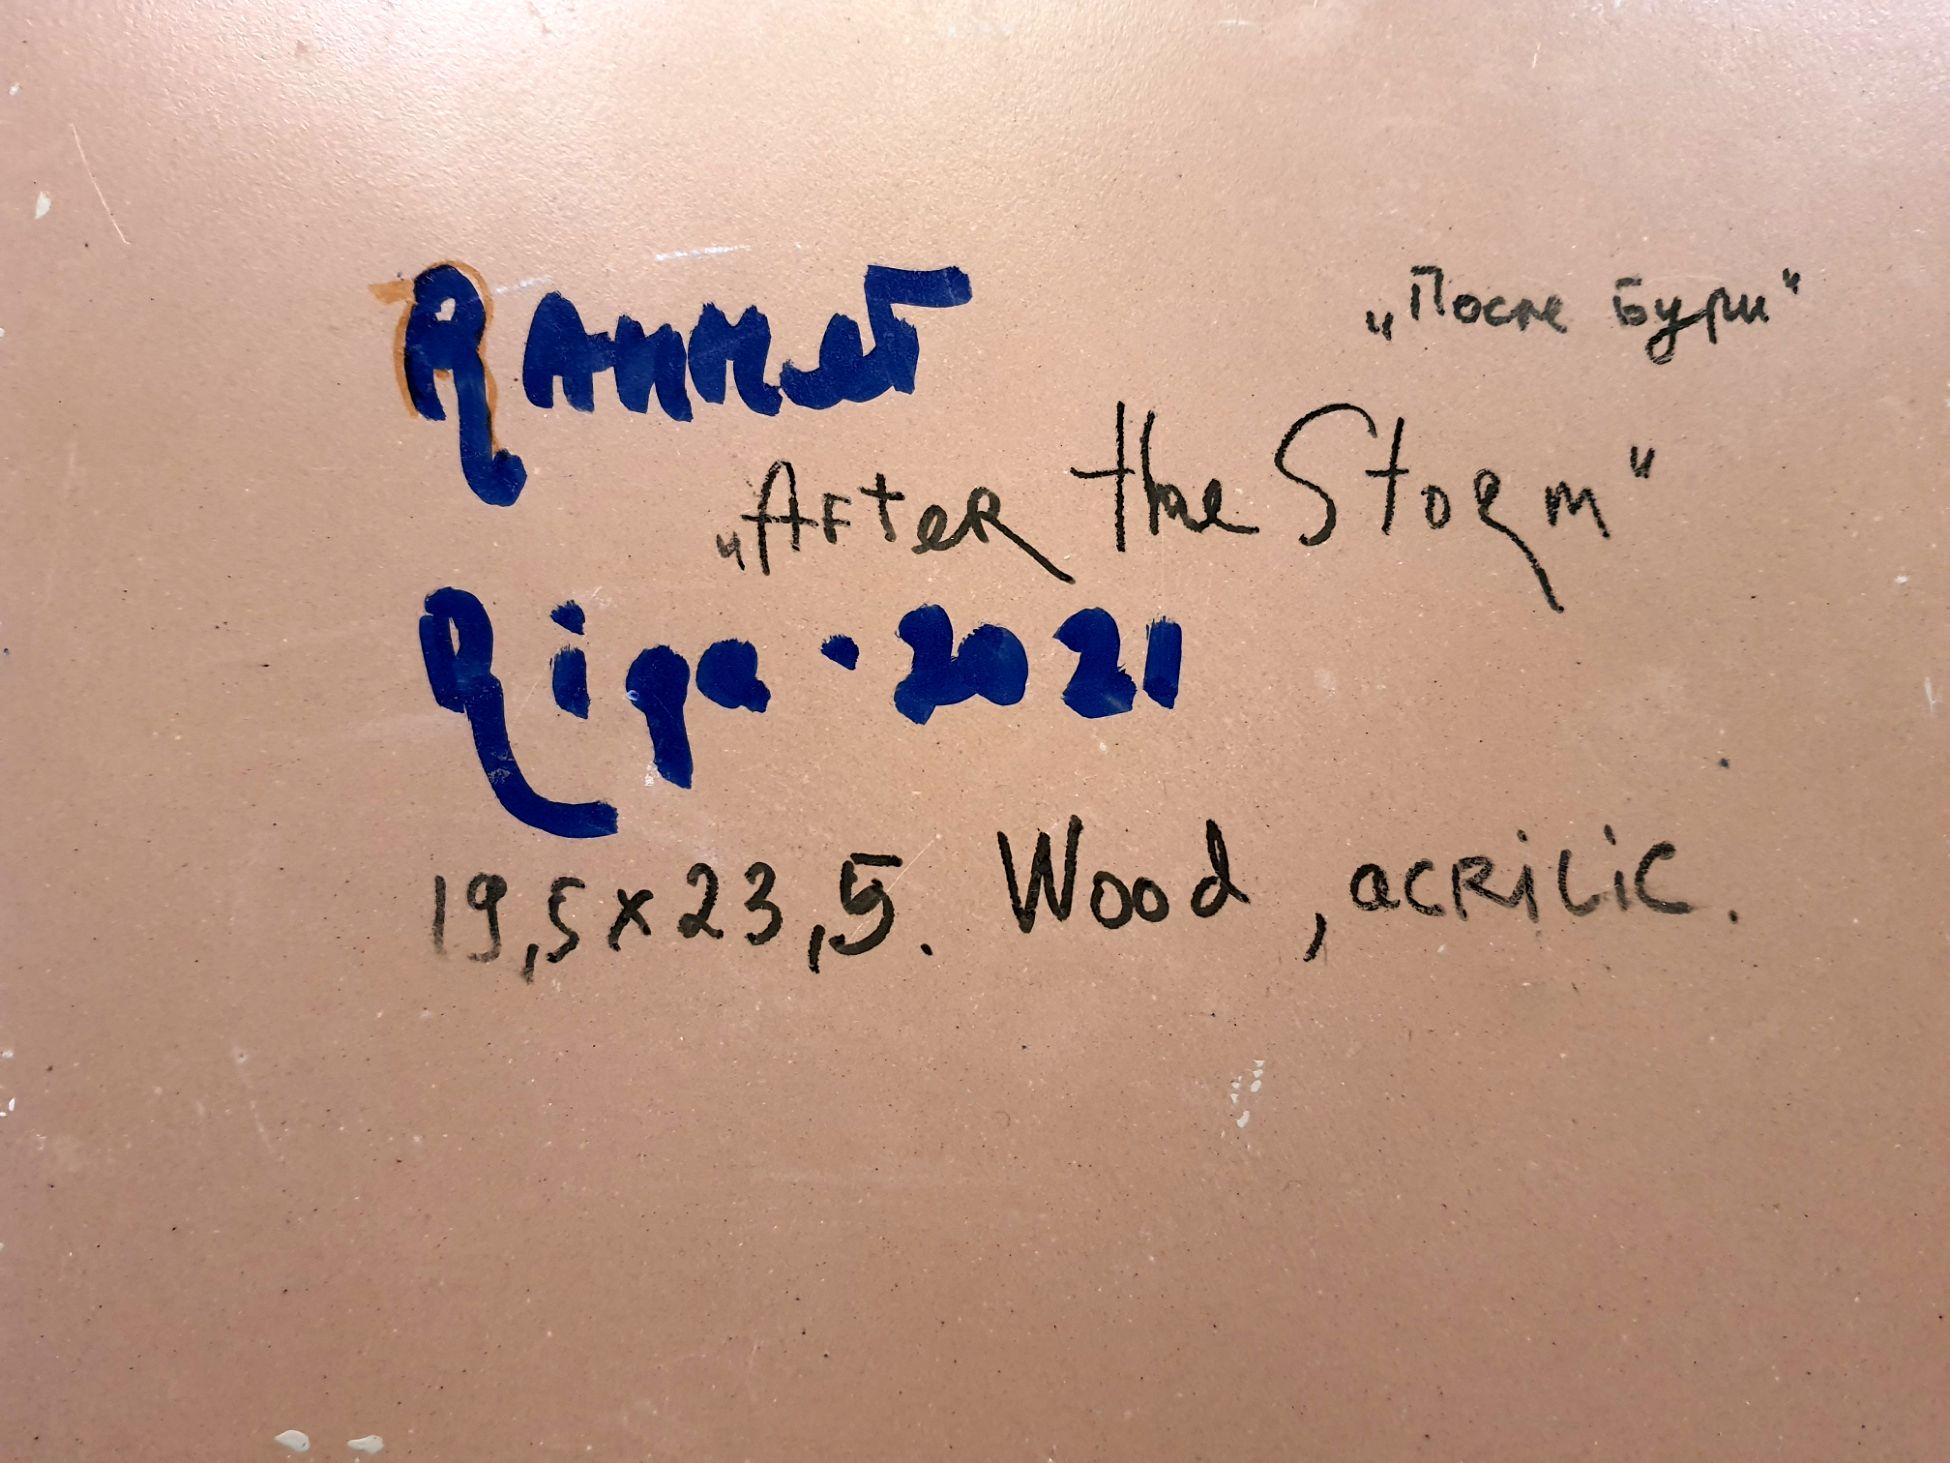 Rannet
„После Бури“
„After the Storm“
Riga · 2021
19,5x23,5. Wood, acrilic.